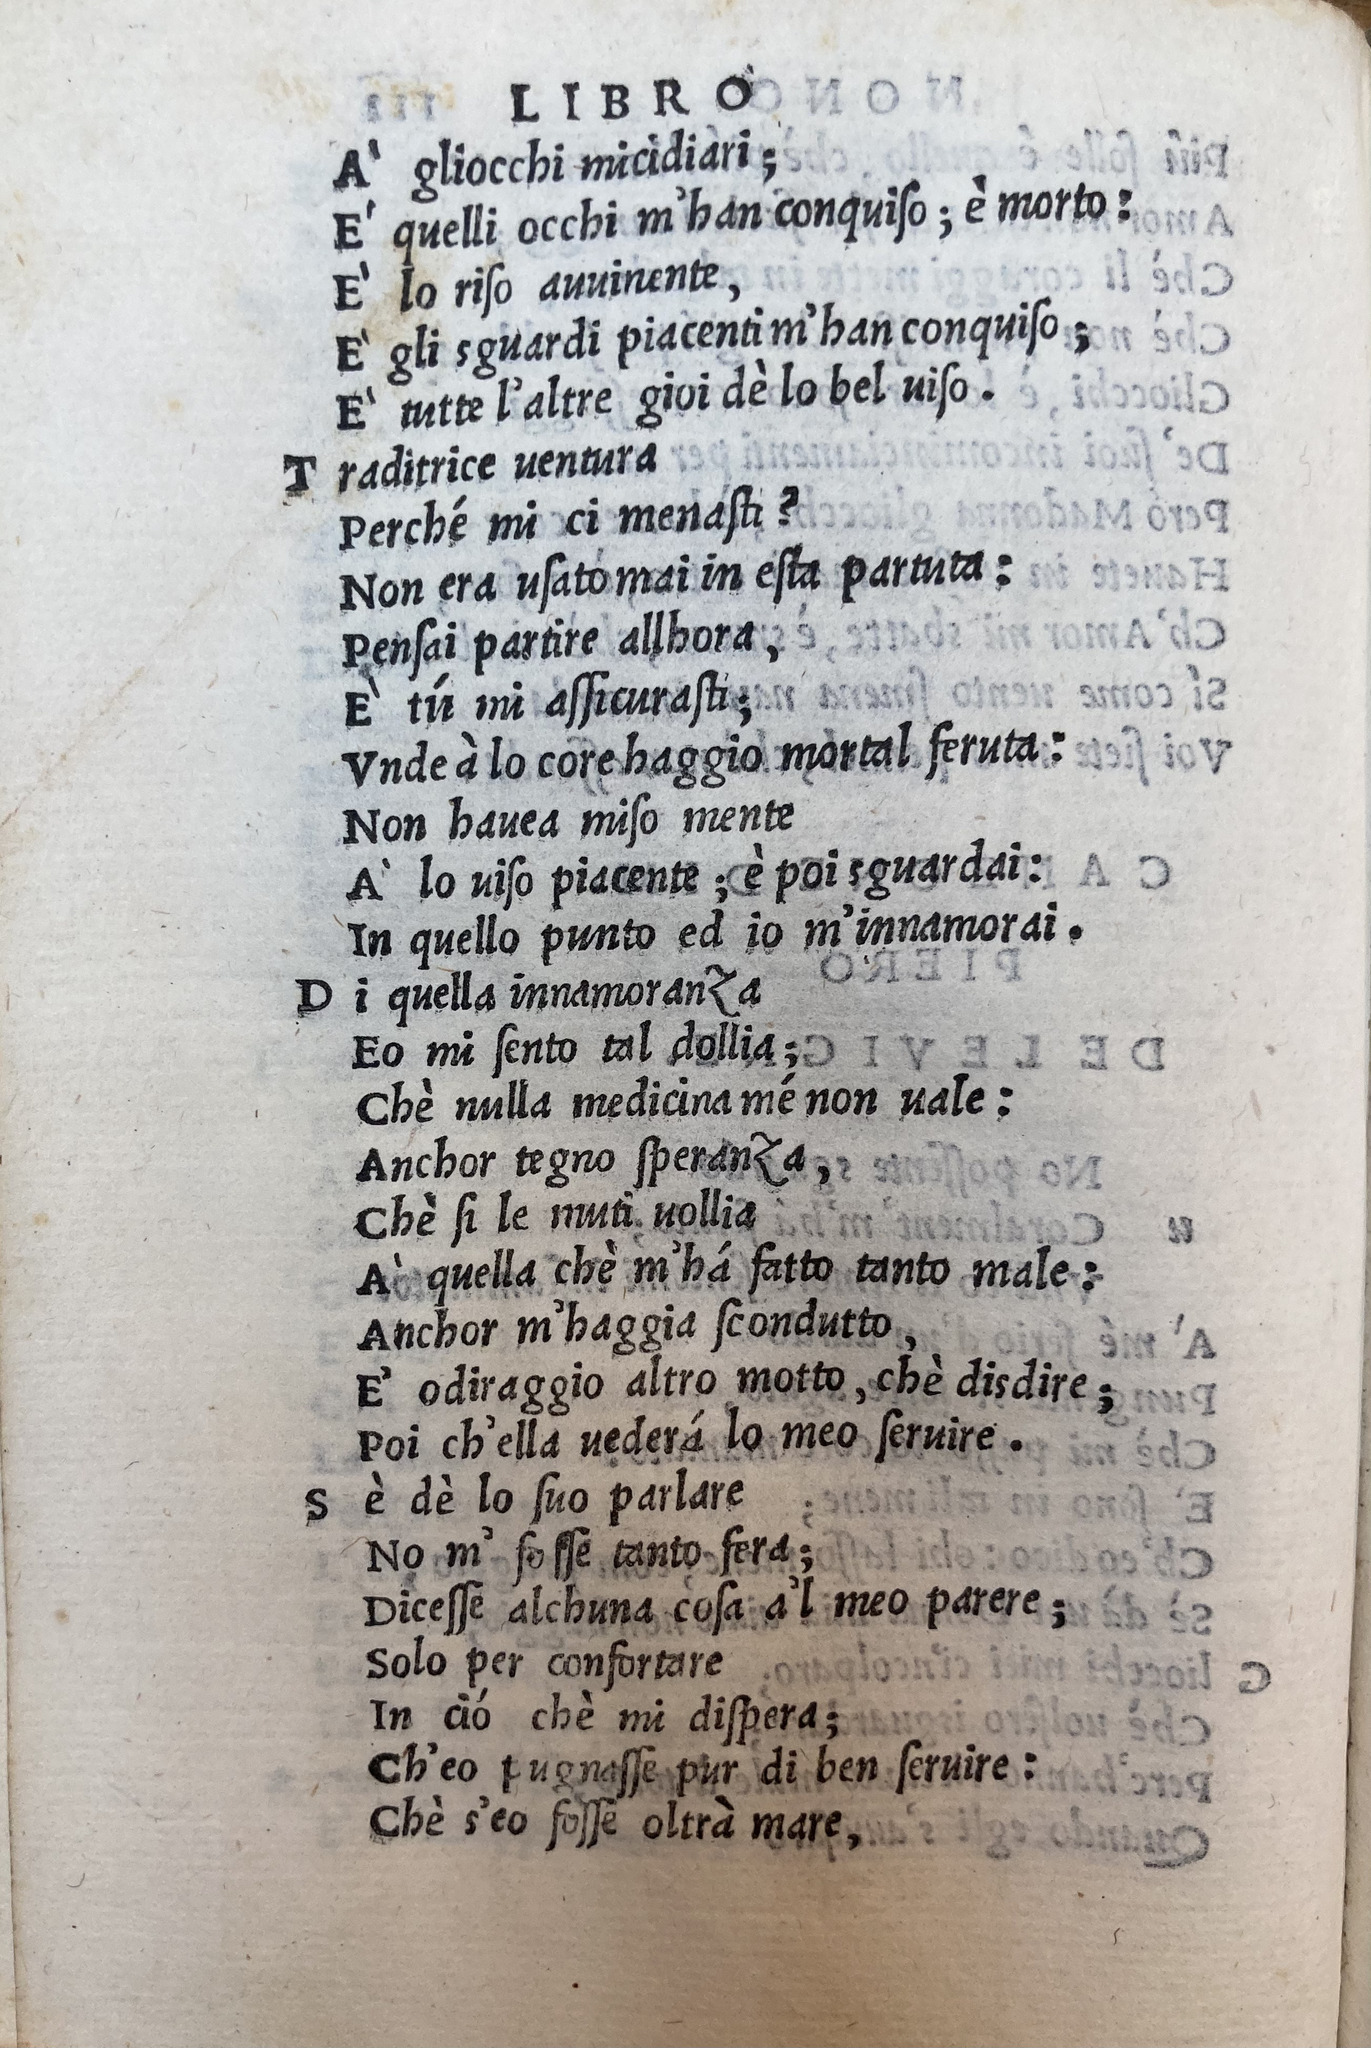 LIBRO
A' gliocchi micidiari;
E' quelli occhi m'han conquiſo; è morto:
E' lo riſo auuinente,
E' gli sguardi piacenti m'han conquiſo;
E' tutte l'altre gioi dè lo bel uiſo.
T raditrice uentura
Perché mi ci menaſti?
Non era uſato mai in eſta partuta:
Penſai partire allhora,
E' tú mi aſſicuraſti;
Vnde à lo core haggio mortal feruta:
Non hauea miſo mente
A' lo uiſo piacente; è poi sguardai:
In quello punto ed io m'innamorai.
D i quella innamoranza
Eo mi ſento tal dollia;
Chè nulla medicina mé non uale:
Anchor tegno ſperanza,
Chè ſi le muti uollia
A' quella chè m'há fatto tanto male:
Anchor m'haggia ſcondutto,
E' odiraggio altro motto, chè disdire;
Poi ch'ella uederá lo meo ſeruire.
S è dè lo ſuo parlare
No m' foſſe tanto fera;
Diceſſe alchuna coſa a'l meo parere;
Solo per confortare
In ció chè mi diſpera;
Ch'eo pugnaſſe pur di ben ſeruire:
Chè s'eo foſſe oltrà mare,